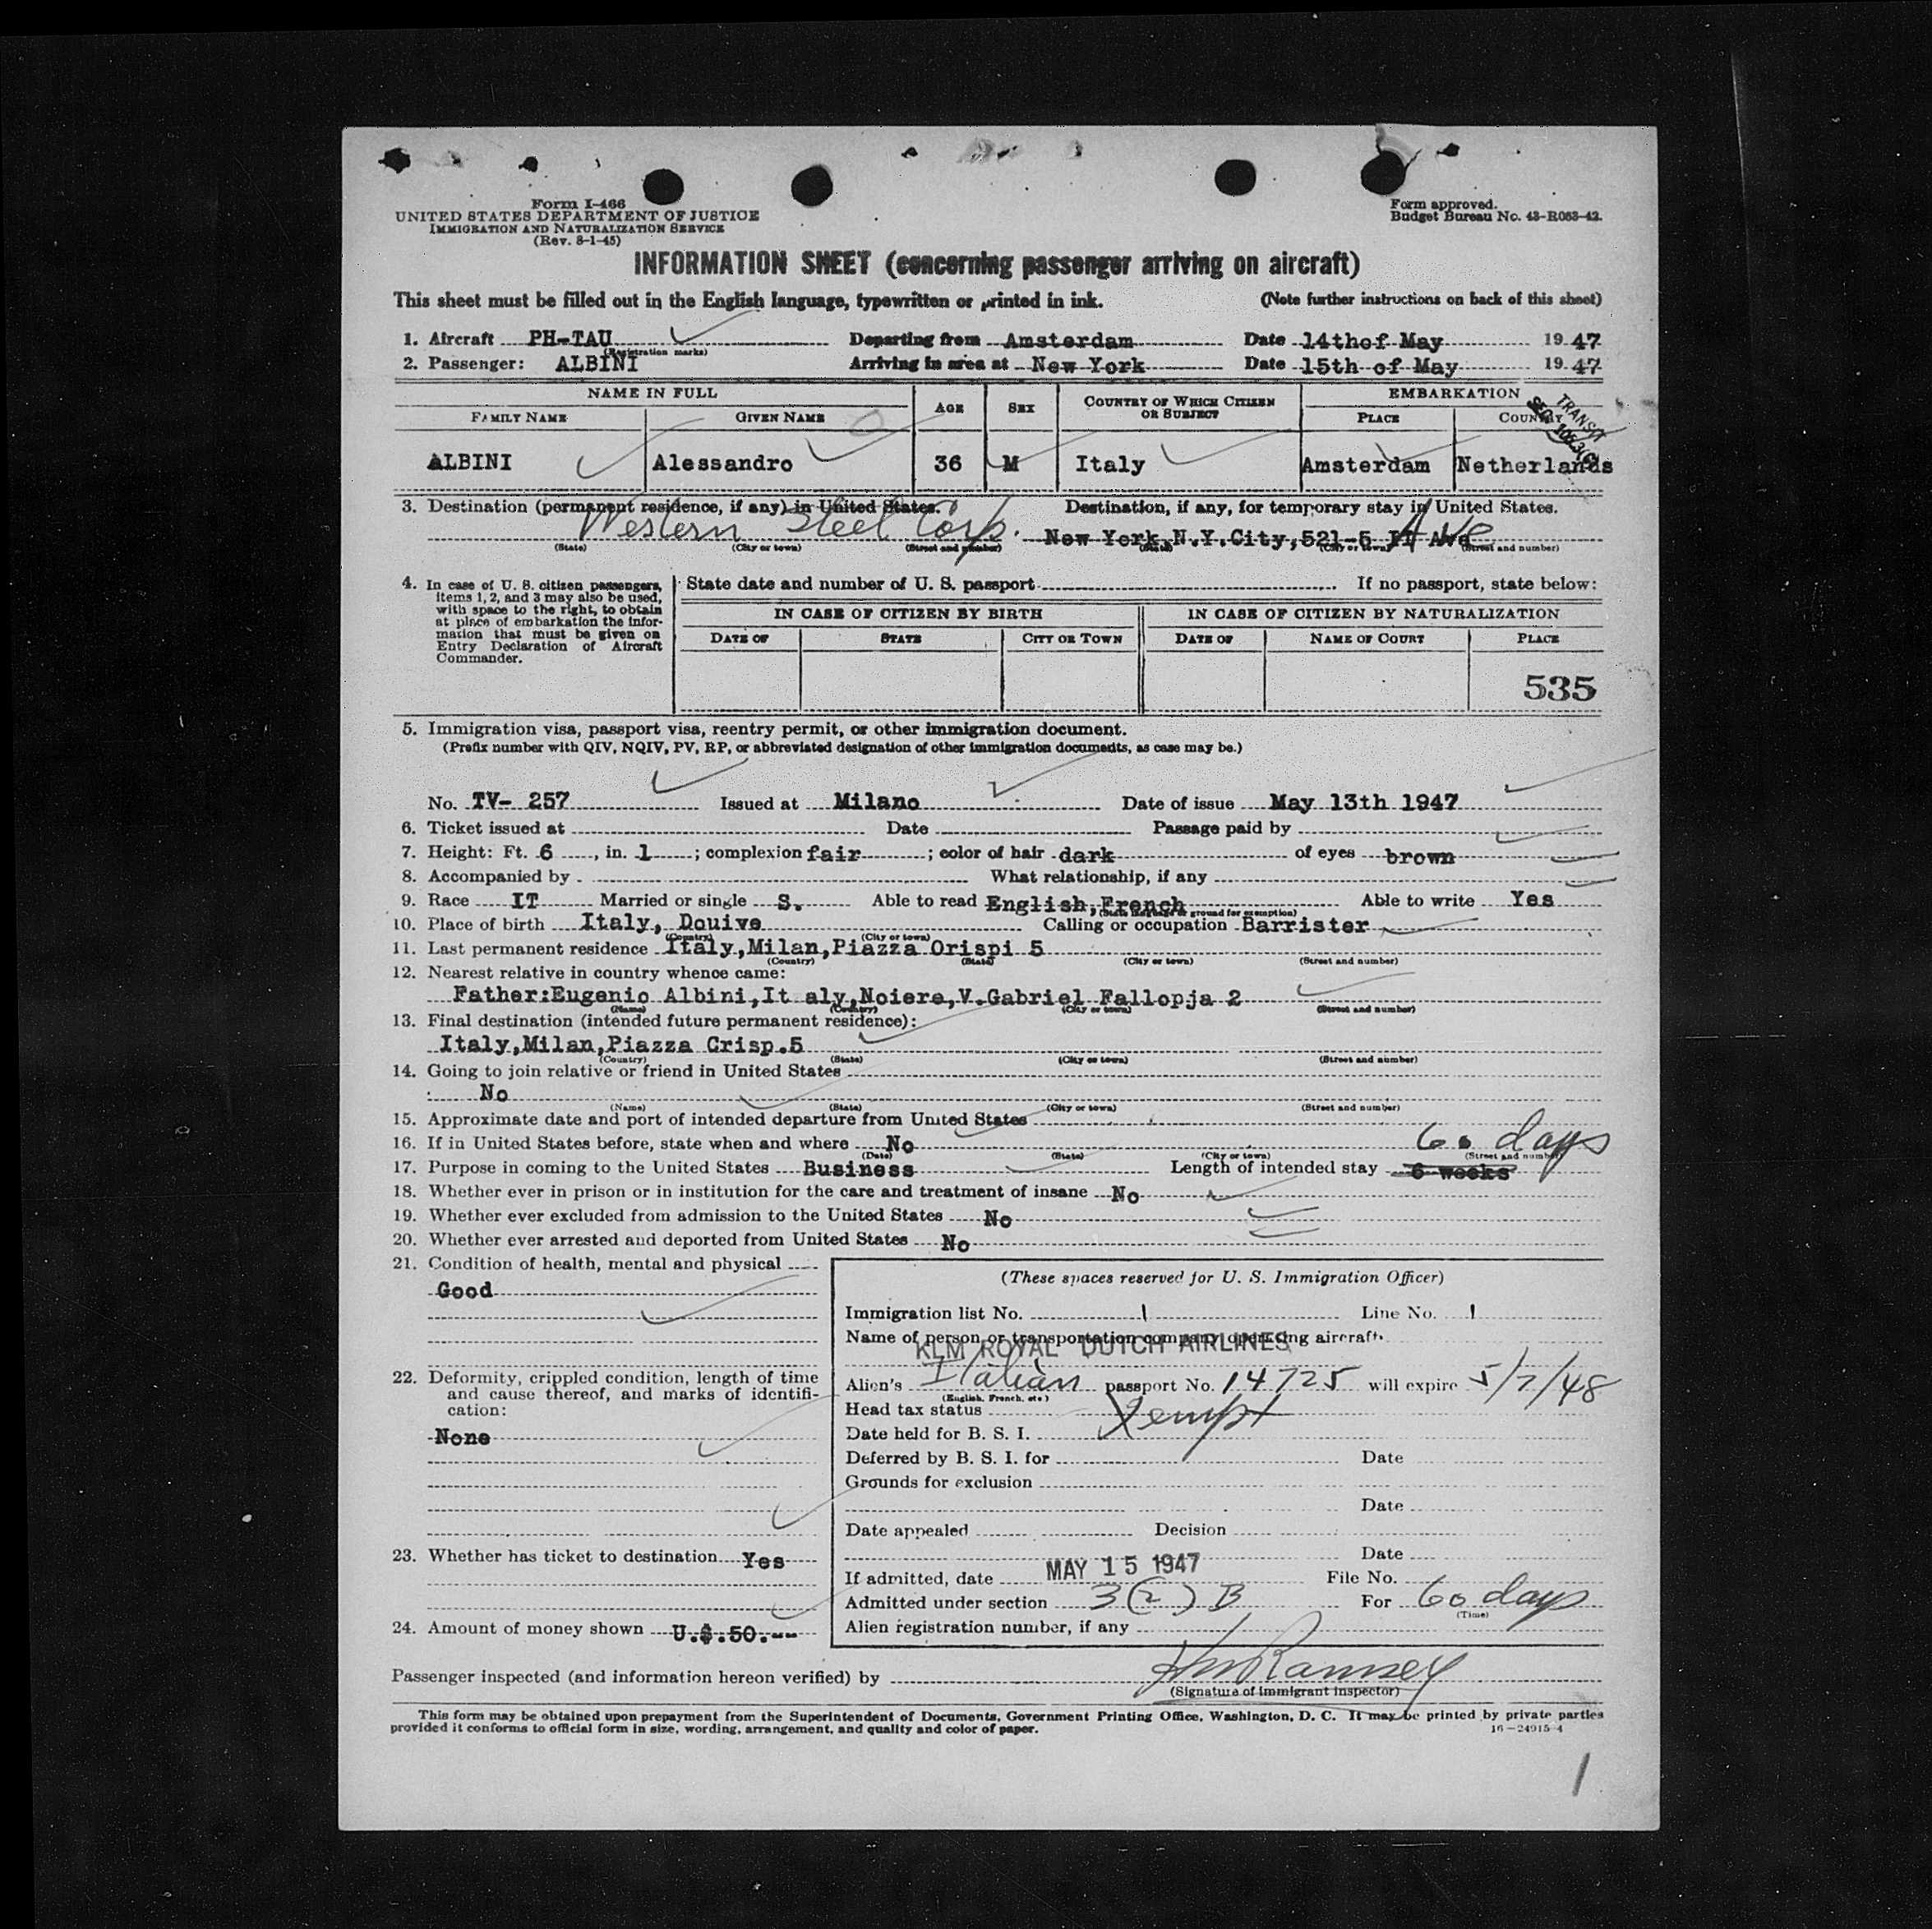 Form I-466
UNITED STATES DEPARTMENT OF JUSTICE
IMMIGRATION AND NATURALIZATION SERVICE
(Rev. 8-1-45)
Form approved.
Budget Bureau No. 43-R053-42.
INFORMATION SHEET (concerning passenger arriving on aircraft)
This sheet must be filled out in the English language, typewritten or printed in ink. (Note further instructions on back of this sheet)
1. Aircraft PH-TAU Departing from Amsterdam Date 14thof May 19 47
(Registration marks)
2. Passenger: ALBINI Arriving in area at New York Date 15th of May 19 47
NAME IN FULL AGE SEX COUNTRY OF WHICH CITIZEN OR SUBJECT EMBARKATION
FAMILY NAME GIVEN NAME PLACE COUNTRY
TRANSIT
SEC. 105.3(c)
ALBINI Alessandro 36 M Italy Amsterdam Netherlands
3. Destination (permanent residence, if any) in United States. Destination, if any, for temporary stay in United States.
Western Steel Corp. New York,N.Y.City,521-5 Ave
(State) (City or town) (Street and number) (State) (City or town) (Street and number)
4. In case of U. S. citizen passengers, items 1, 2, and 3 may also be used, with space to the right, to obtain at place of embarkation the information that must be given on Entry Declaration of Aircraft Commander.
State date and number of U. S. passport If no passport, state below:
IN CASE OF CITIZEN BY BIRTH IN CASE OF CITIZEN BY NATURALIZATION
DATE OF STATE CITY OR TOWN DATE OF NAME OF COURT PLACE
535
5. Immigration visa, passport visa, reentry permit, or other immigration document.
(Prefix number with QIV, NQIV, PV, RP, or abbreviated designation of other immigration documents, as case may be.)
No. TV- 257 Issued at Milano Date of issue May 13th 1947
6. Ticket issued at Date Passage paid by
7. Height: Ft. 6, in. 1; complexion fair; color of hair dark of eyes brown
8. Accompanied by What relationship, if any
9. Race IT Married or single S. Able to read English,French Able to write Yes
(State language or ground for exemption)
10. Place of birth Italy, Douive Calling or occupation Barrister
(Country) (City or town)
11. Last permanent residence Italy,Milan,Piazza Crispi 5
(Country) (State) (City or town) (Street and number)
12. Nearest relative in country whence came:
Father:Eugenio Albini,It aly,Noiere,V.Gabriel Fallopja 2
(Name) (Country) (City or town) (Street and number)
13. Final destination (intended future permanent residence):
Italy,Milan,Piazza Crisp.5
(Country) (State) (City or town) (Street and number)
14. Going to join relative or friend in United States
No
(Name) (State) (City or town) (Street and number)
15. Approximate date and port of intended departure from United States
16. If in United States before, state when and where No 60 days
(Date) (State) (City or town) (Street and number)
17. Purpose in coming to the United States Business Length of intended stay 6 weeks
18. Whether ever in prison or in institution for the care and treatment of insane No
19. Whether ever excluded from admission to the United States No
20. Whether ever arrested and deported from United States No
21. Condition of health, mental and physical
Good
22. Deformity, crippled condition, length of time
and cause thereof, and marks of identifi-
cation:
None
23. Whether has ticket to destination Yes
24. Amount of money shown U.$.50.--
(These spaces reserved for U. S. Immigration Officer)
Immigration list No. 1 Line No. 1
Name of person or transportation company operating aircraft
KLM ROYAL DUTCH AIRLINES
Alien's Italian passport No. 14725 will expire 5/7/48
(English, French, etc.)
Head tax status Xempt
Date held for B. S. I.
Deferred by B. S. I. for Date
Grounds for exclusion
Date
Date appealed Decision
Date
If admitted, date MAY 15 1947 File No.
Admitted under section 3(2) B For 60 days
(Time)
Alien registration number, if any
Passenger inspected (and information hereon verified) by
(Signature of immigrant inspector)
This form may be obtained upon prepayment from the Superintendent of Documents, Government Printing Office, Washington, D. C. It may be printed by private parties
provided it conforms to official form in size, wording, arrangement, and quality and color of paper. 16—24915-4
1